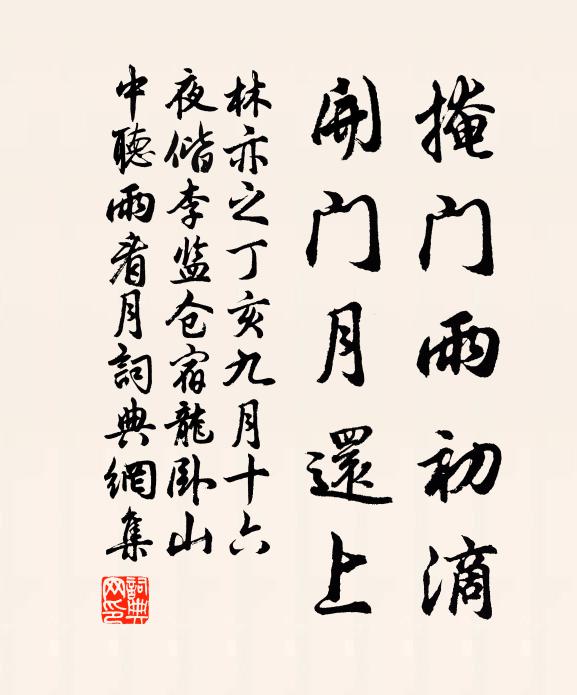 掩门雨初滴
開门月還上
林亦之丁亥九月十六
夜偕李监仓宿龍卧山
中聽雨看月詞典網集
詞典网印